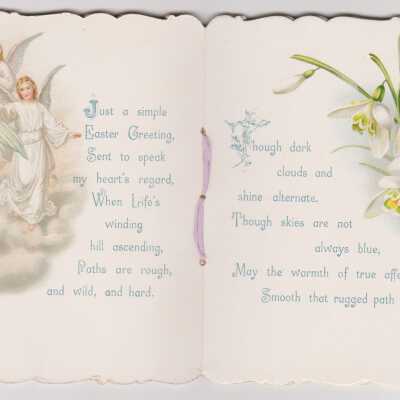 Just a simple
Easter Greeting,
Sent to speak
my heart's regard,
When Life's
winding
hill ascending,
Paths are rough,
and wild, and hard.
Though dark
clouds and
shine alternate.
Though skies are not
always blue,
May the warmth of true affe
Smooth that rugged path